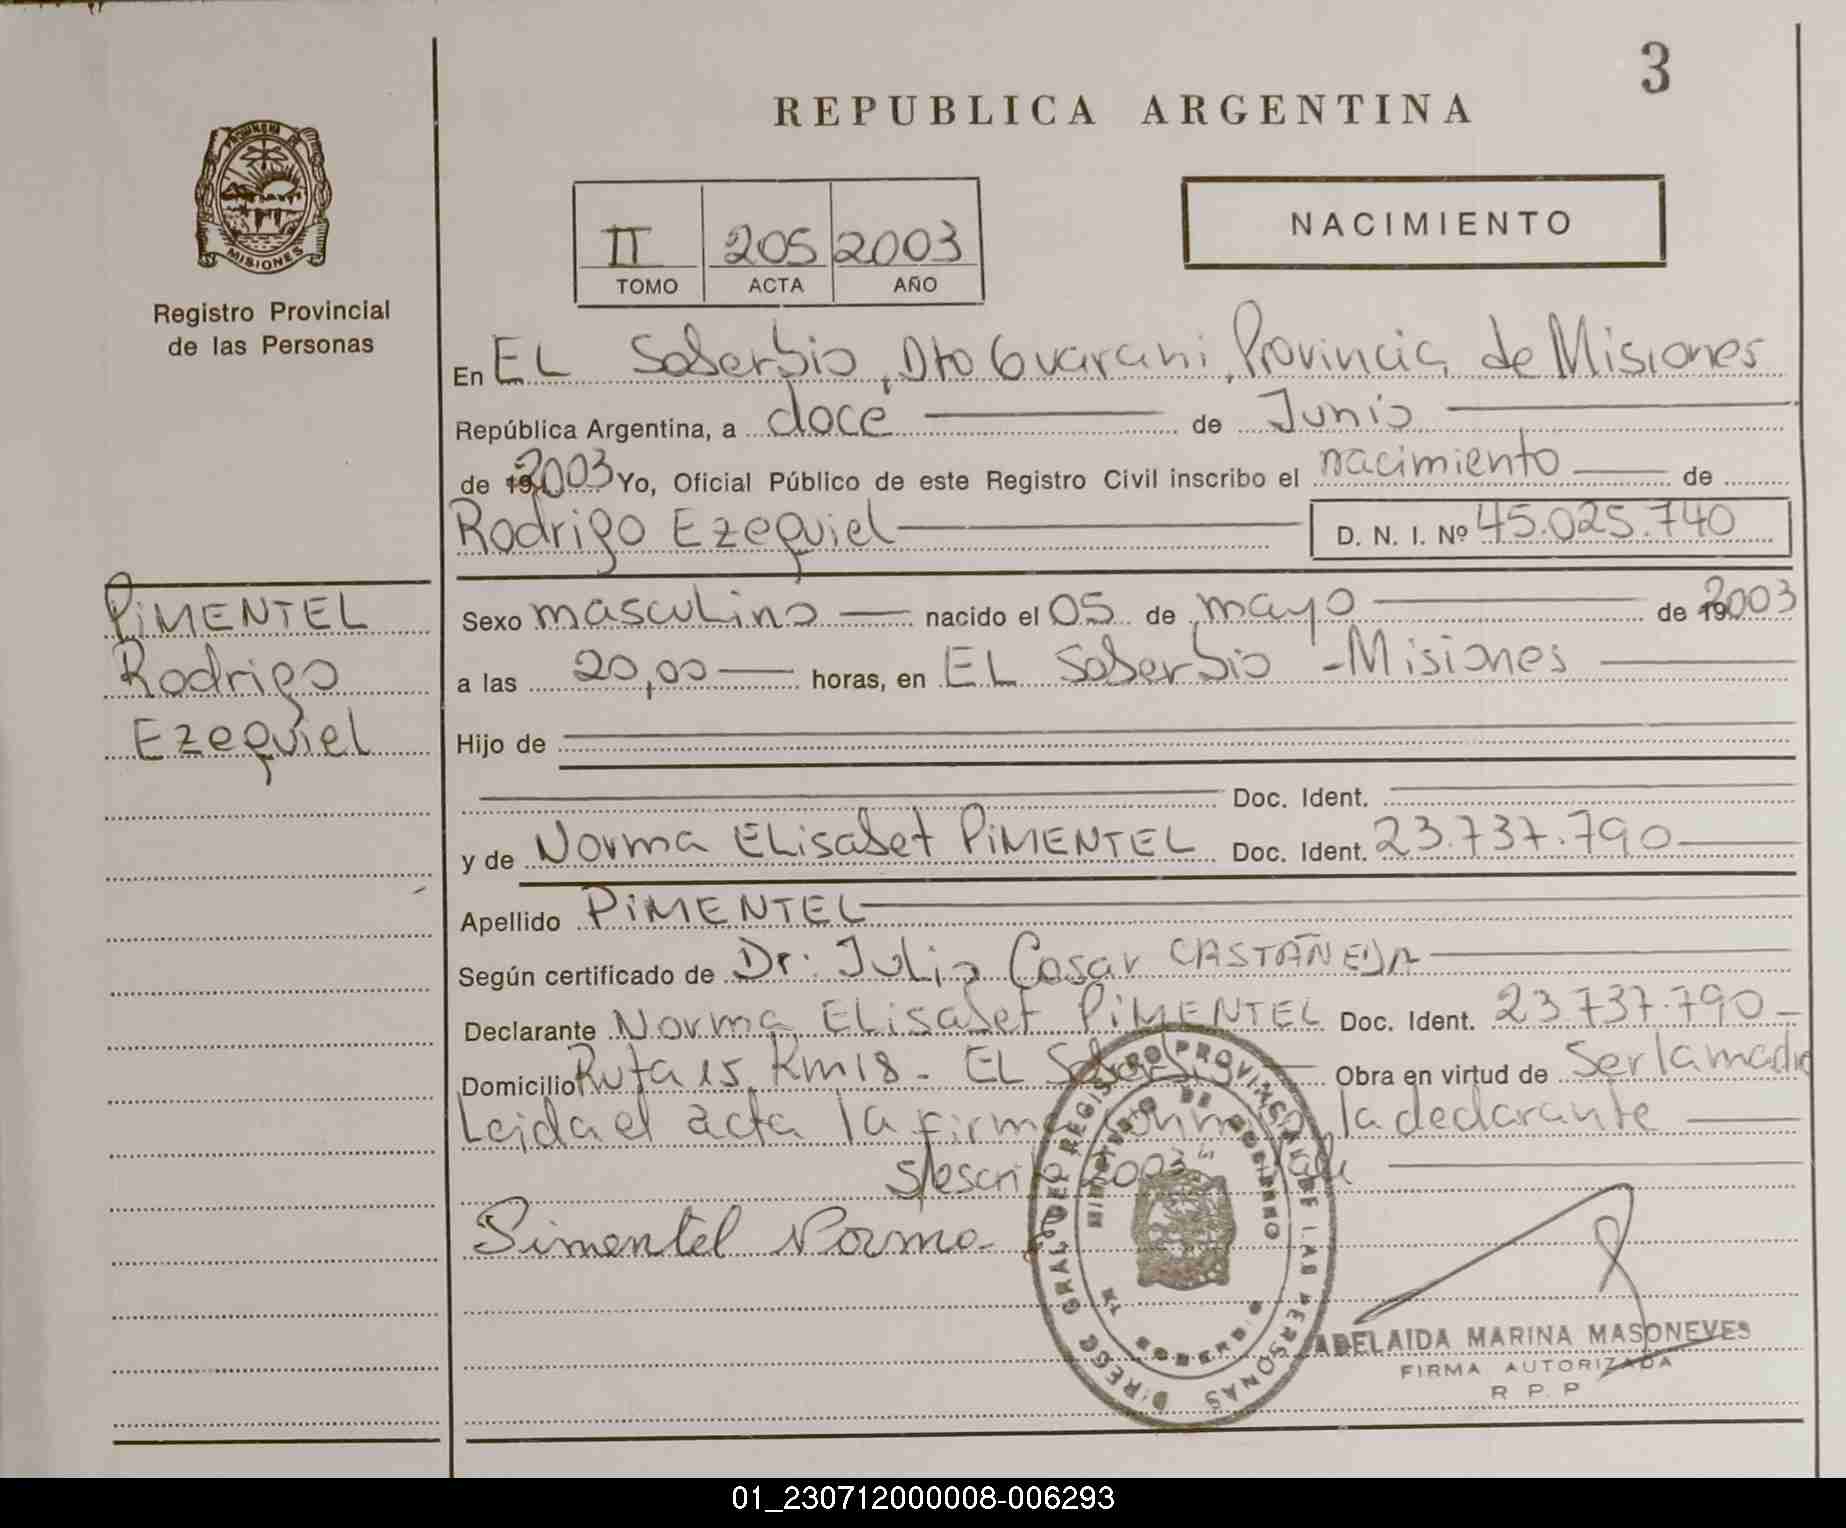 3
REPUBLICA ARGENTINA
MISIONES
Registro Provincial
de las Personas
II 205 2003
TOMO ACTA AÑO
NACIMIENTO
En EL Soberbio, Dto Guarani, Provincia de Misiones
República Argentina, a doce de Junio
de 2003 Yo, Oficial Público de este Registro Civil inscribo el nacimiento de
Rodrigo Ezequiel D. N. I. Nº 45.025.740
PIMENTEL
Rodrigo
Ezequiel
Sexo masculino nacido el 05 de mayo de 2003
a las 20,00 horas, en EL Soberbio - Misiones
Hijo de
Doc. Ident.
y de Norma ELisabet PiMENTEL Doc. Ident. 23.737.790
Apellido PiMENTEL
Según certificado de Dr. Julio Cesar CASTAÑEDA
Declarante Norma ELisabet PiMENTEL Doc. Ident. 23.737.790
Domicilio Ruta 15 Km 18 - EL Soberbio Obra en virtud de Ser la madre
Leida el acta la firma la declarante
2003
Pimentel Norma
DIRECC GRAL DEL REGISTRO PROVINCIAL DE LAS PERSONAS
MINISTERIO DE GOBIERNO
ADELAIDA MARINA MASONEVES
FIRMA AUTORIZADA
R P. P
01_230712000008-006293